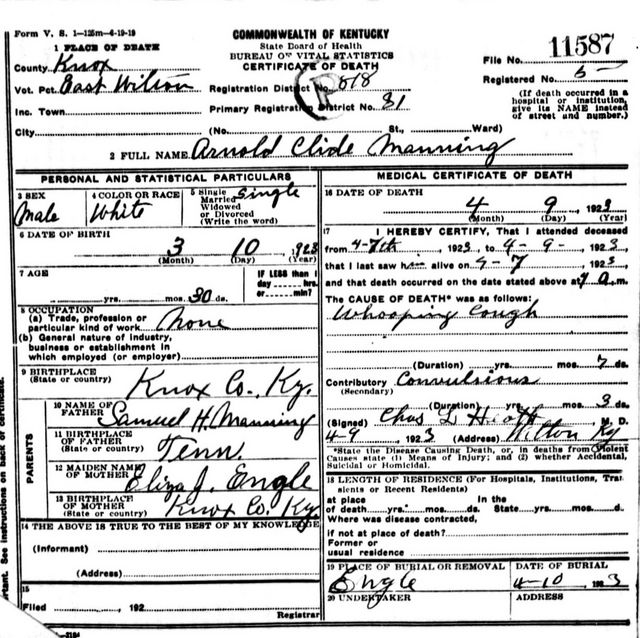 Form V. S. 1—125m—6-19-19
COMMONWEALTH OF KENTUCKY
State Board of Health
BUREAU OF VITAL STATISTICS
CERTIFICATE OF DEATH
File No. 11587
Registered No. 5
(If death occurred in a hospital or institution, give its NAME instead of street and number.)
1 PLACE OF DEATH
County Knox
Vot. Pct. East Wilson
Inc. Town
City
(No. St., Ward)
Registration District No. 818
Primary Registration District No. 81
2 FULL NAME Arnold Clide Manning
PERSONAL AND STATISTICAL PARTICULARS
3 SEX
Male
4 COLOR OR RACE
White
5 Single
Married
Widowed
or Divorced
(Write the word)
Single
6 DATE OF BIRTH
3 10 1923
(Month) (Day) (Year)
7 AGE
yrs. mos. 30 ds.
IF LESS than 1
day hrs.
or min.?
8 OCCUPATION
(a) Trade, profession or
particular kind of work None
(b) General nature of industry,
business or establishment in
which employed (or employer)
9 BIRTHPLACE
(State or country)
Knox Co. Ky.
PARENTS
10 NAME OF
FATHER
Samuel H. Manning
11 BIRTHPLACE
OF FATHER
(State or country)
Tenn.
12 MAIDEN NAME
OF MOTHER
Eliza J. Engle
13 BIRTHPLACE
OF MOTHER
(State or country)
Knox Co. Ky.
14 THE ABOVE IS TRUE TO THE BEST OF MY KNOWLEDGE
(Informant)
(Address)
15
Filed , 192
Registrar
MEDICAL CERTIFICATE OF DEATH
16 DATE OF DEATH
4 9 , 1923
(Month) (Day) (Year)
17
I HEREBY CERTIFY, That I attended deceased
from 4-7th , 1923, to 4-9- , 1923,
that I last saw him alive on 4-7 , 1923
and that death occurred on the date stated above at a.m.
The CAUSE OF DEATH* was as follows:
Whooping Cough
(Duration) yrs. mos. 7 ds.
Contributory Convulsions
(Secondary)
(Duration) yrs. mos. 3 ds.
(Signed) Chas L M. D.
4-9 1923 (Address) Wilton Ky
*State the Disease Causing Death, or, in deaths from Violent
Causes state (1) Means of Injury; and (2) whether Accidental,
Suicidal or Homicidal.
18 LENGTH OF RESIDENCE (For Hospitals, Institutions, Tran
sients or Recent Residents)
At place In the
of death yrs. mos. ds. State yrs. mos. d
Where was disease contracted,
if not at place of death?
Former or
usual residence
19 PLACE OF BURIAL OR REMOVAL
Engle
DATE OF BURIAL
4-10 1923
20 UNDERTAKER
ADDRESS
rtant. See instructions on back of certificate.
—3184